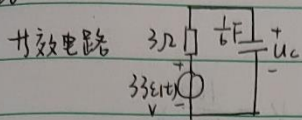 等效电路
3Ω
1/6 F
+
Uc
-
+
33ε(t)
V
-